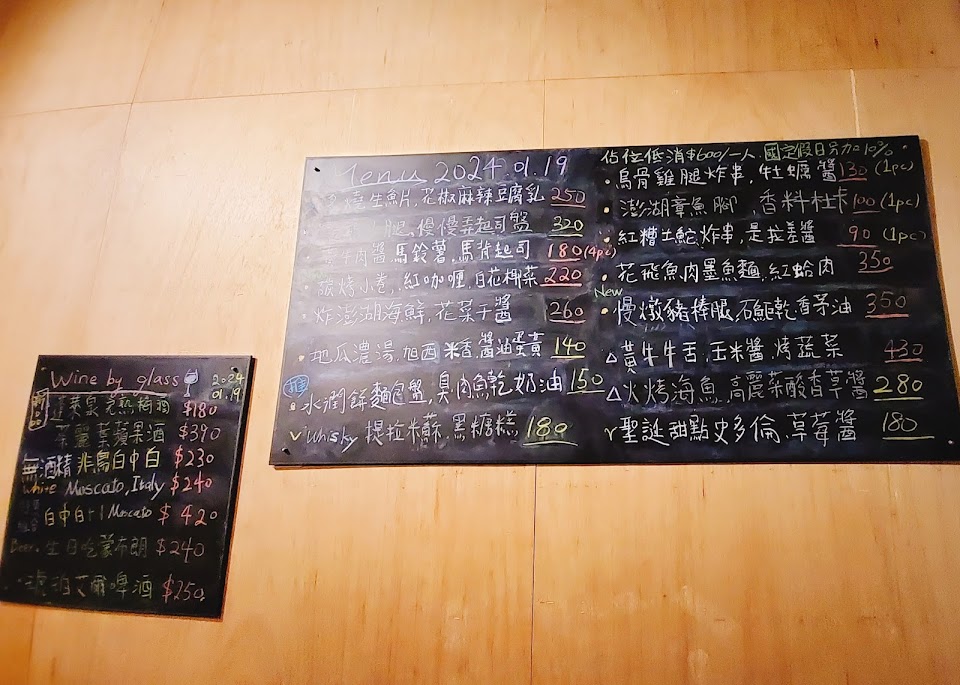 Menu 2024.01.19
生魚片,花椒麻辣豆腐乳 250
腿,慢慢弄起司盤 320
牛肉醬馬鈴薯,馬背起司 180(4pc)
烤小卷,紅咖喱,白花椰菜 220
炸澎湖海鮮,花菜干醬 260
地瓜濃湯,加西米香,醬油蛋黃 140
水潤餅麵包盤,臭肉魚乾奶油 150
Whisky 提拉米蘇,黑糖糕 180
佔位低消$600/一人,國定假日另加10%
烏骨雞腿炸串,牡蠣醬 130 (1pc)
澎湖章魚腳,香料杜卡 100 (1pc)
紅糟土魠炸串,是拉差醬 90 (1pc)
花飛魚肉墨魚麵,紅蛤肉 350
New
慢燉豬棒腿,石鮔乾香茅油 350
黃牛牛舌,玉米醬,烤蔬菜 430
火烤海魚,高麗菜酸香草醬 280
聖誕甜點史多倫,草莓醬 180
Wine by glass 2024 01.19
蓬萊泉 $180
蘋果酒 $390
無酒精 非鳥白中白 $230
White Moscato, Italy $240
白中白+1 Moscato $420
Beer. 生日吃蒙布朗 $240
琥珀艾爾啤酒 $250